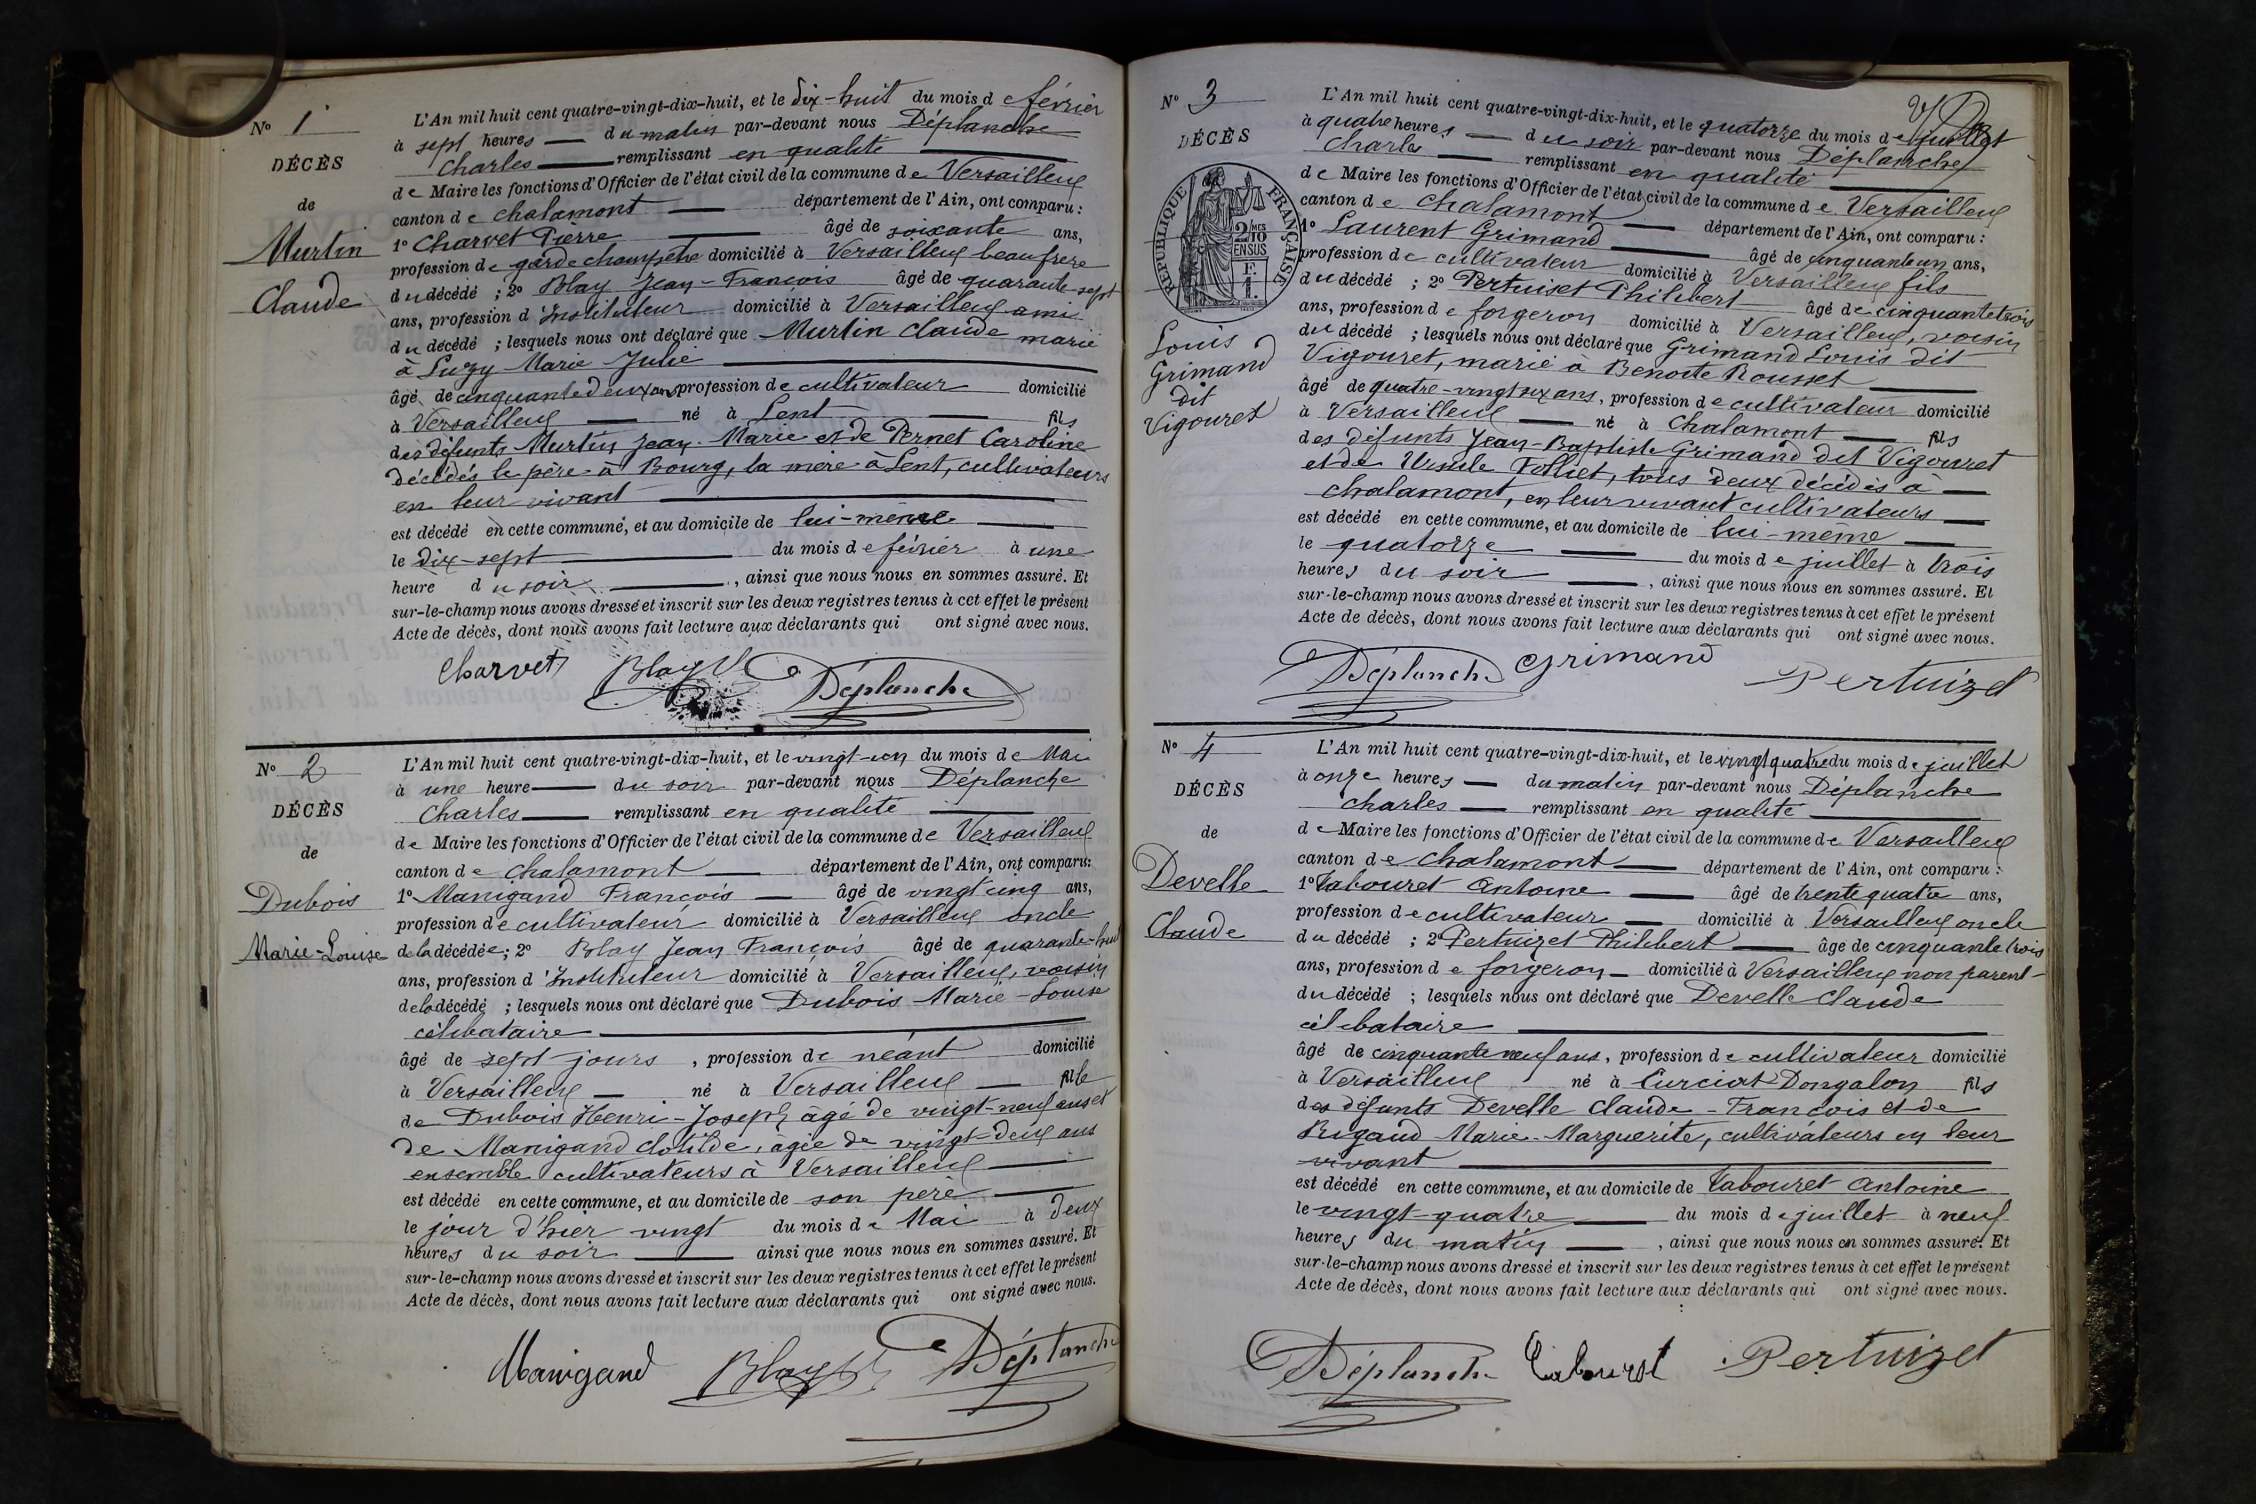 N° 1
DÉCÈS
de
Murtin
Claude
L'An mil huit cent quatre-vingt-dix-huit, et le dix-huit du mois de février
à sept heures du matin par-devant nous Déplanche
Charles remplissant en qualité
de Maire les fonctions d'Officier de l'état civil de la commune de Versailleux
canton de Chalamont département de l'Ain, ont comparu :
1° Charvet Pierre âgé de soixante ans,
profession de garde champêtre domicilié à Versailleux beau frère
du décédé ; 2° Blay Jean-François âgé de quarante-sept
ans, profession d'Instituteur domicilié à Versailleux ami
du décédé ; lesquels nous ont déclaré que Murtin Claude marié
à Luzy Marie Julie
âgé de cinquante deux ans profession de cultivateur domicilié
à Versailleux né à Lent fils
des défunts Murtin Jean-Marie et de Pernet Caroline
décédés le père à Bourg, la mère à Lent, cultivateurs
en leur vivant
est décédé en cette commune, et au domicile de lui-même
le dix-sept du mois de février à une
heure du soir, ainsi que nous nous en sommes assuré. Et
sur-le-champ nous avons dressé et inscrit sur les deux registres tenus à cet effet le présent
Acte de décès, dont nous avons fait lecture aux déclarants qui ont signé avec nous.
Charvet Blay Déplanche
N° 2
DÉCÈS
de
Dubois
Marie-Louise
L'An mil huit cent quatre-vingt-dix-huit, et le vingt-un du mois de Mai
à une heure du soir par-devant nous Déplanche
Charles remplissant en qualité
de Maire les fonctions d'Officier de l'état civil de la commune de Versailleux
canton de Chalamont département de l'Ain, ont comparu :
1° Manigand François âgé de vingt cinq ans,
profession de cultivateur domicilié à Versailleux oncle
de la décédée ; 2° Blay Jean François âgé de quarante-huit
ans, profession d'Instituteur domicilié à Versailleux, voisin
de la décédé ; lesquels nous ont déclaré que Dubois Marie-Louise
célibataire
âgé de sept jours, profession de néant domicilié
à Versailleux né à Versailleux fille
de Dubois Henri-Joseph âgé de vingt-neuf ans et
de Manigand Clotilde, âgée de vingt-deux ans
ensemble cultivateurs à Versailleux
est décédé en cette commune, et au domicile de son père
le jour d'hier vingt du mois de Mai à deux
heures du soir ainsi que nous nous en sommes assuré. Et
sur-le-champ nous avons dressé et inscrit sur les deux registres tenus à cet effet le présent
Acte de décès, dont nous avons fait lecture aux déclarants qui ont signé avec nous.
Manigand Blay Déplanche
N° 3
DÉCÈS
RÉPUBLIQUE FRANÇAISE
2 MES
10
EN SUS
Louis
Grimand
dit
Vigouret
L'An mil huit cent quatre-vingt-dix-huit, et le quatorze du mois de juillet
à quatre heures du soir par-devant nous Déplanche
Charles remplissant en qualité
de Maire les fonctions d'Officier de l'état civil de la commune de Versailleux
canton de Chalamont département de l'Ain, ont comparu :
1° Laurent Grimand âgé de cinquante un ans,
profession de cultivateur domicilié à Versailleux fils
du décédé ; 2° Pertuiset Philibert âgé de cinquante trois
ans, profession de forgeron domicilié à Versailleux, voisin
du décédé ; lesquels nous ont déclaré que Grimand Louis dit
Vigouret, marié à Benoite Rousset
âgé de quatre-vingt six ans, profession de cultivateur domicilié
à Versailleux né à Chalamont fils
des défunts Jean-Baptiste Grimand dit Vigouret
et de Ursule Folliet, tous deux décédés à
Chalamont, en leur vivant cultivateurs
est décédé en cette commune, et au domicile de lui-même
le quatorze du mois de juillet à trois
heures du soir, ainsi que nous nous en sommes assuré. Et
sur-le-champ nous avons dressé et inscrit sur les deux registres tenus à cet effet le présent
Acte de décès, dont nous avons fait lecture aux déclarants qui ont signé avec nous.
Déplanche Grimand Pertuizet
N° 4
DÉCÈS
de
Develle
Claude
L'An mil huit cent quatre-vingt-dix-huit, et le vingt quatre du mois de juillet
à onze heures du matin par-devant nous Déplanche
Charles remplissant en qualité
de Maire les fonctions d'Officier de l'état civil de la commune de Versailleux
canton de Chalamont département de l'Ain, ont comparu :
1° Tabouret Antoine âgé de trente quatre ans,
profession de cultivateur domicilié à Versailleux oncle
du décédé ; 2° Pertuizet Philibert âgé de cinquante trois
ans, profession de forgeron domicilié à Versailleux non parent
du décédé ; lesquels nous ont déclaré que Develle Claude
célibataire
âgé de cinquante neuf ans, profession de cultivateur domicilié
à Versailleux né à Curciat Dongalon fils
des défunts Develle Claude-François et de
Rigaud Marie-Marguerite, cultivateurs en leur
vivant
est décédé en cette commune, et au domicile de Tabouret Antoine
le vingt-quatre du mois de juillet à neuf
heures du matin, ainsi que nous nous en sommes assuré. Et
sur-le-champ nous avons dressé et inscrit sur les deux registres tenus à cet effet le présent
Acte de décès, dont nous avons fait lecture aux déclarants qui ont signé avec nous.
Déplanche Tabouret Pertuizet